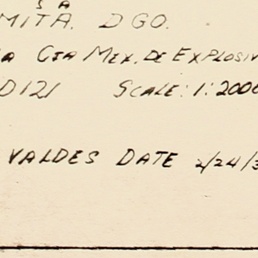 S A
MITA. DGO.
A CIA MEX. DE EXPLOSIV
D121 SCALE: 1:2000
VALDES DATE 2/24/3